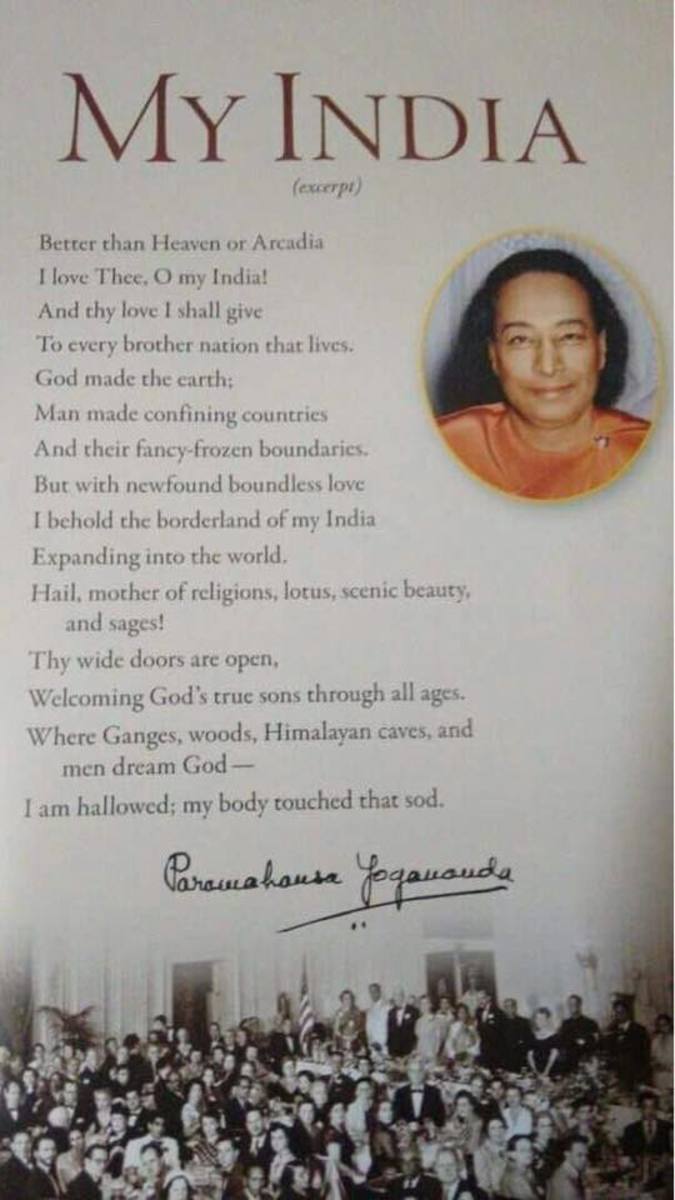 MY INDIA
(excerpt)
Better than Heaven or Arcadia
I love Thee, O my India!
And thy love I shall give
To every brother nation that lives.
God made the earth;
Man made confining countries
And their fancy-frozen boundaries.
But with newfound boundless love
I behold the borderland of my India
Expanding into the world.
Hail, mother of religions, lotus, scenic beauty,
and sages!
Thy wide doors are open,
Welcoming God's true sons through all ages.
Where Ganges, woods, Himalayan caves, and
men dream God—
I am hallowed; my body touched that sod.
Paramahansa Yogananda